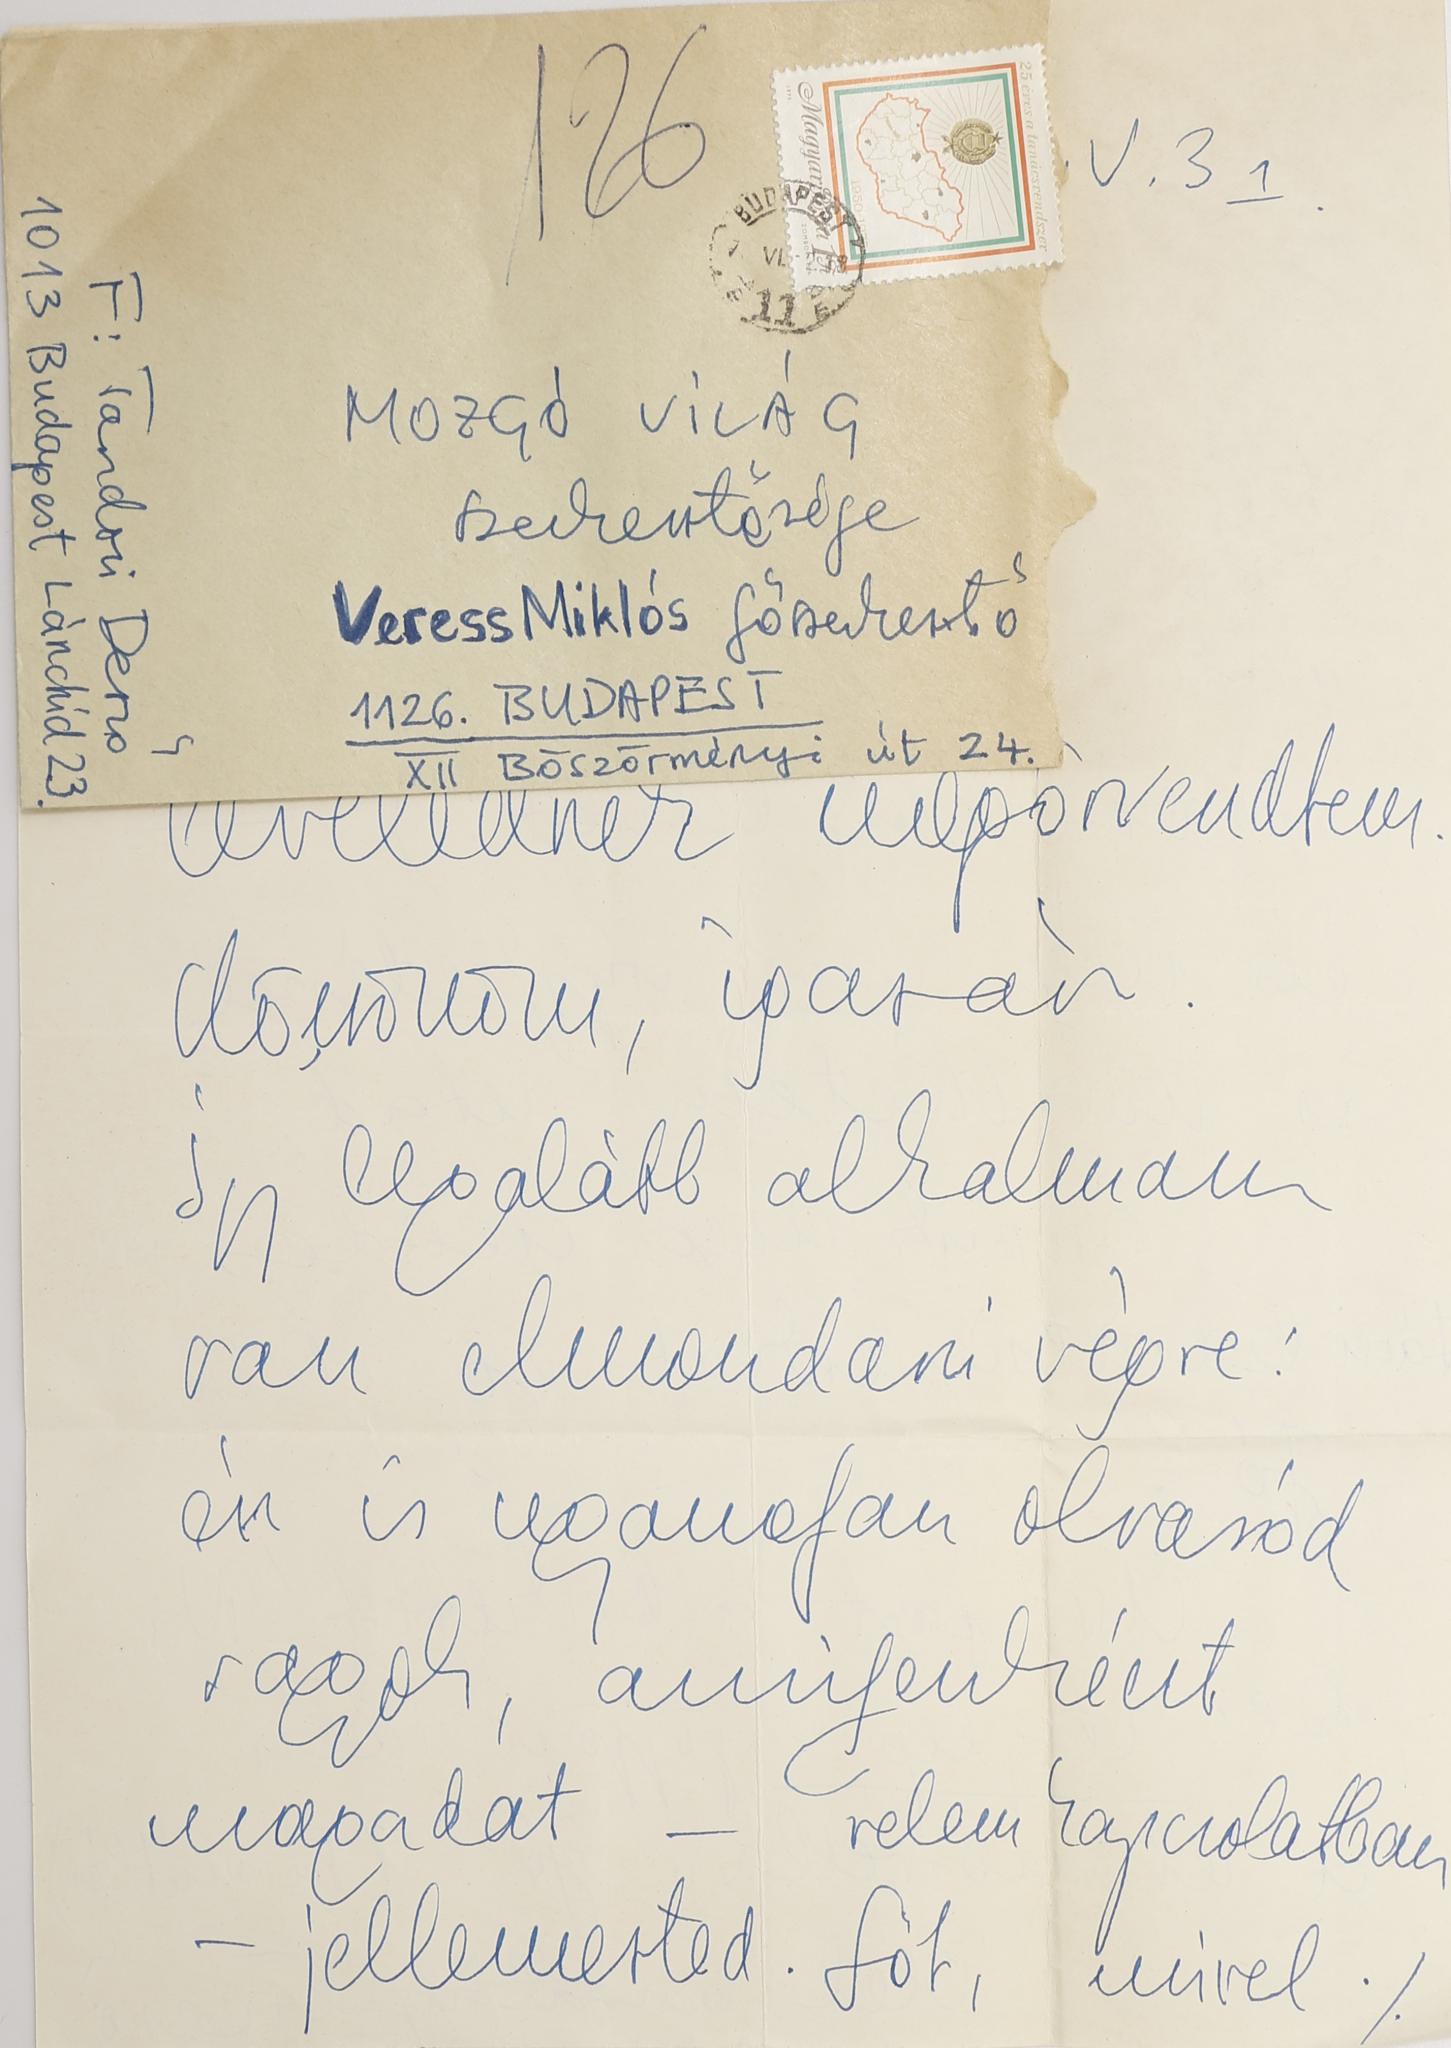 126
25 éves a tanácsrendszer
Magyar
1950
BUDAPEST
VI.
11
V. 31.
F: Tandori Dezső
1013 Budapest Lánchíd 23.
MOZGÓ VILÁG
szerkesztősége
Veress Miklós főszerkesztő
1126. BUDAPEST
XII Böszörményi út 24.
levelednek megörvendtem.
Köszönöm, igazán.
Így legalább alkalmam
van elmondani végre:
én is ugyanolyan olvasód
vagyok, amilyenként
magadat – velem kapcsolatban
– jellemezted. Sőt, mivel ./.